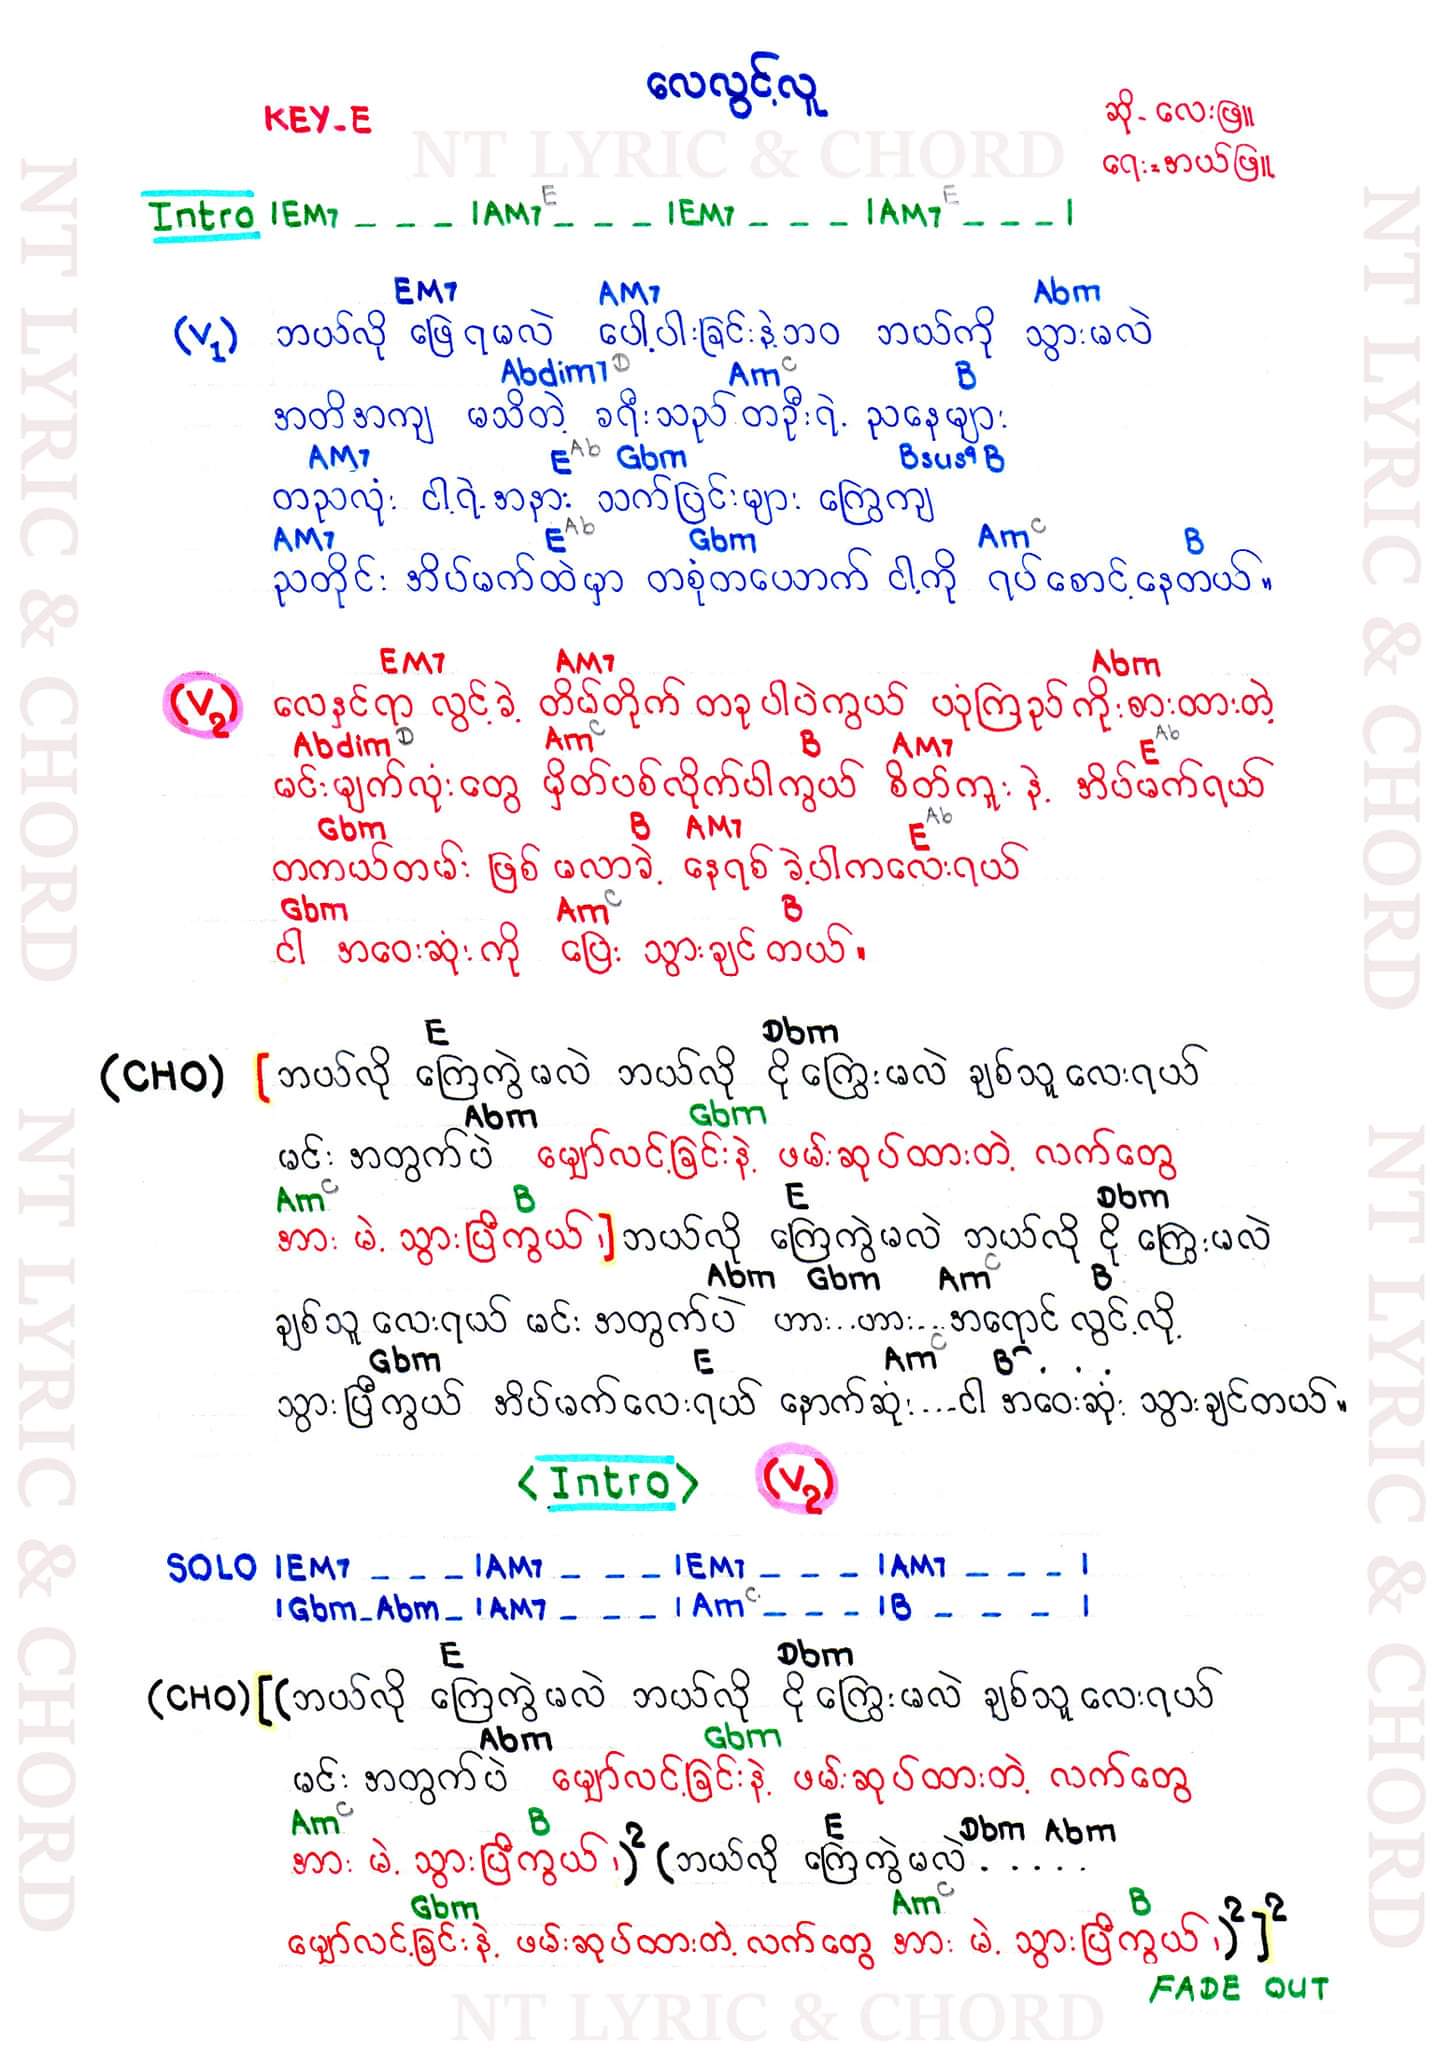 လေလွင့်လူ
KEY-E
ဆို- လေးဖြူ။
ရေး=အယ်ဖြူ။
NT LYRIC & CHORD
Intro |EM7 _ _ _ |AM7 E _ _ _ |EM7 _ _ _ |AM7 E _ _ _ |
EM7 AM7 Abm
(V1) ဘယ်လို ဖြေရမလဲ ပေါ့ပါးခြင်းနဲ့ဘဝ ဘယ်ကို သွားမလဲ
Abdim7 D Am C B
အတိအကျ မသိတဲ့ ခရီးသည်တဦးရဲ့ ညနေများ
AM7 E Ab Gbm Bsus4 B
တညလုံး ငါ့ရဲ့အနား သက်ပြင်းများ ကြွေကျ
AM7 E Ab Gbm Am C B
ညတိုင်း အိပ်မက်ထဲမှာ တစုံတယောက် ငါ့ကို ရပ်စောင့်နေတယ်။
EM7 AM7 Abm
(V2) လေနှင်ရာ လွင့်ခဲ့ တိမ်တိုက် တခုပါပဲကွယ် ယုံကြည်ကိုးစားထားတဲ့
Abdim D Am C B AM7 E Ab
မင်းမျက်လုံးတွေ မှိတ်ပစ်လိုက်ပါကွယ် စိတ်ကူးနဲ့ အိပ်မက်ရယ်
Gbm B AM7 E Ab
တကယ်တမ်း ဖြစ်မလာခဲ့ နေရစ်ခဲ့ပါကလေးရယ်
Gbm Am C B
ငါ အဝေးဆုံးကို ပြေး သွားချင်တယ်။
E Dbm
(CHO) [ဘယ်လို ကြေကွဲမလဲ ဘယ်လို ငိုကြွေးမလဲ ချစ်သူလေးရယ်
Abm Gbm
မင်းအတွက်ပဲ မျှော်လင့်ခြင်းနဲ့ ဖမ်းဆုပ်ထားတဲ့ လက်တွေ
Am C B E Dbm
အားမဲ့သွားပြီကွယ်၊] ဘယ်လို ကြေကွဲမလဲ ဘယ်လို ငိုကြွေးမလဲ
Abm Gbm Am C B
ချစ်သူလေးရယ် မင်းအတွက်ပဲ ဟား...ဟား... အရောင်လွင့်လို့
Gbm E Am C B . . .
သွားပြီကွယ် အိပ်မက်လေးရယ် နောက်ဆုံး....ငါ အဝေးဆုံး သွားချင်တယ်။
<Intro> (V2)
SOLO |EM7 _ _ _ |AM7 _ _ _ |EM7 _ _ _ |AM7 _ _ _ |
|Gbm_Abm_|AM7 _ _ _ |Am C _ _ _ |B _ _ _ |
E Dbm
(CHO)[(ဘယ်လို ကြေကွဲမလဲ ဘယ်လို ငိုကြွေးမလဲ ချစ်သူလေးရယ်
Abm Gbm
မင်းအတွက်ပဲ မျှော်လင့်ခြင်းနဲ့ ဖမ်းဆုပ်ထားတဲ့ လက်တွေ
Am C B E Dbm Abm
အားမဲ့သွားပြီကွယ်၊)2 (ဘယ်လို ကြေကွဲမလဲ.....
Gbm Am C B
မျှော်လင့်ခြင်းနဲ့ ဖမ်းဆုပ်ထားတဲ့ လက်တွေ အားမဲ့သွားပြီကွယ်၊)2]2
FADE OUT
NT LYRIC & CHORD
NT LYRIC & CHORD
NT LYRIC & CHORD
NT LYRIC & CHORD
NT LYRIC & CHORD